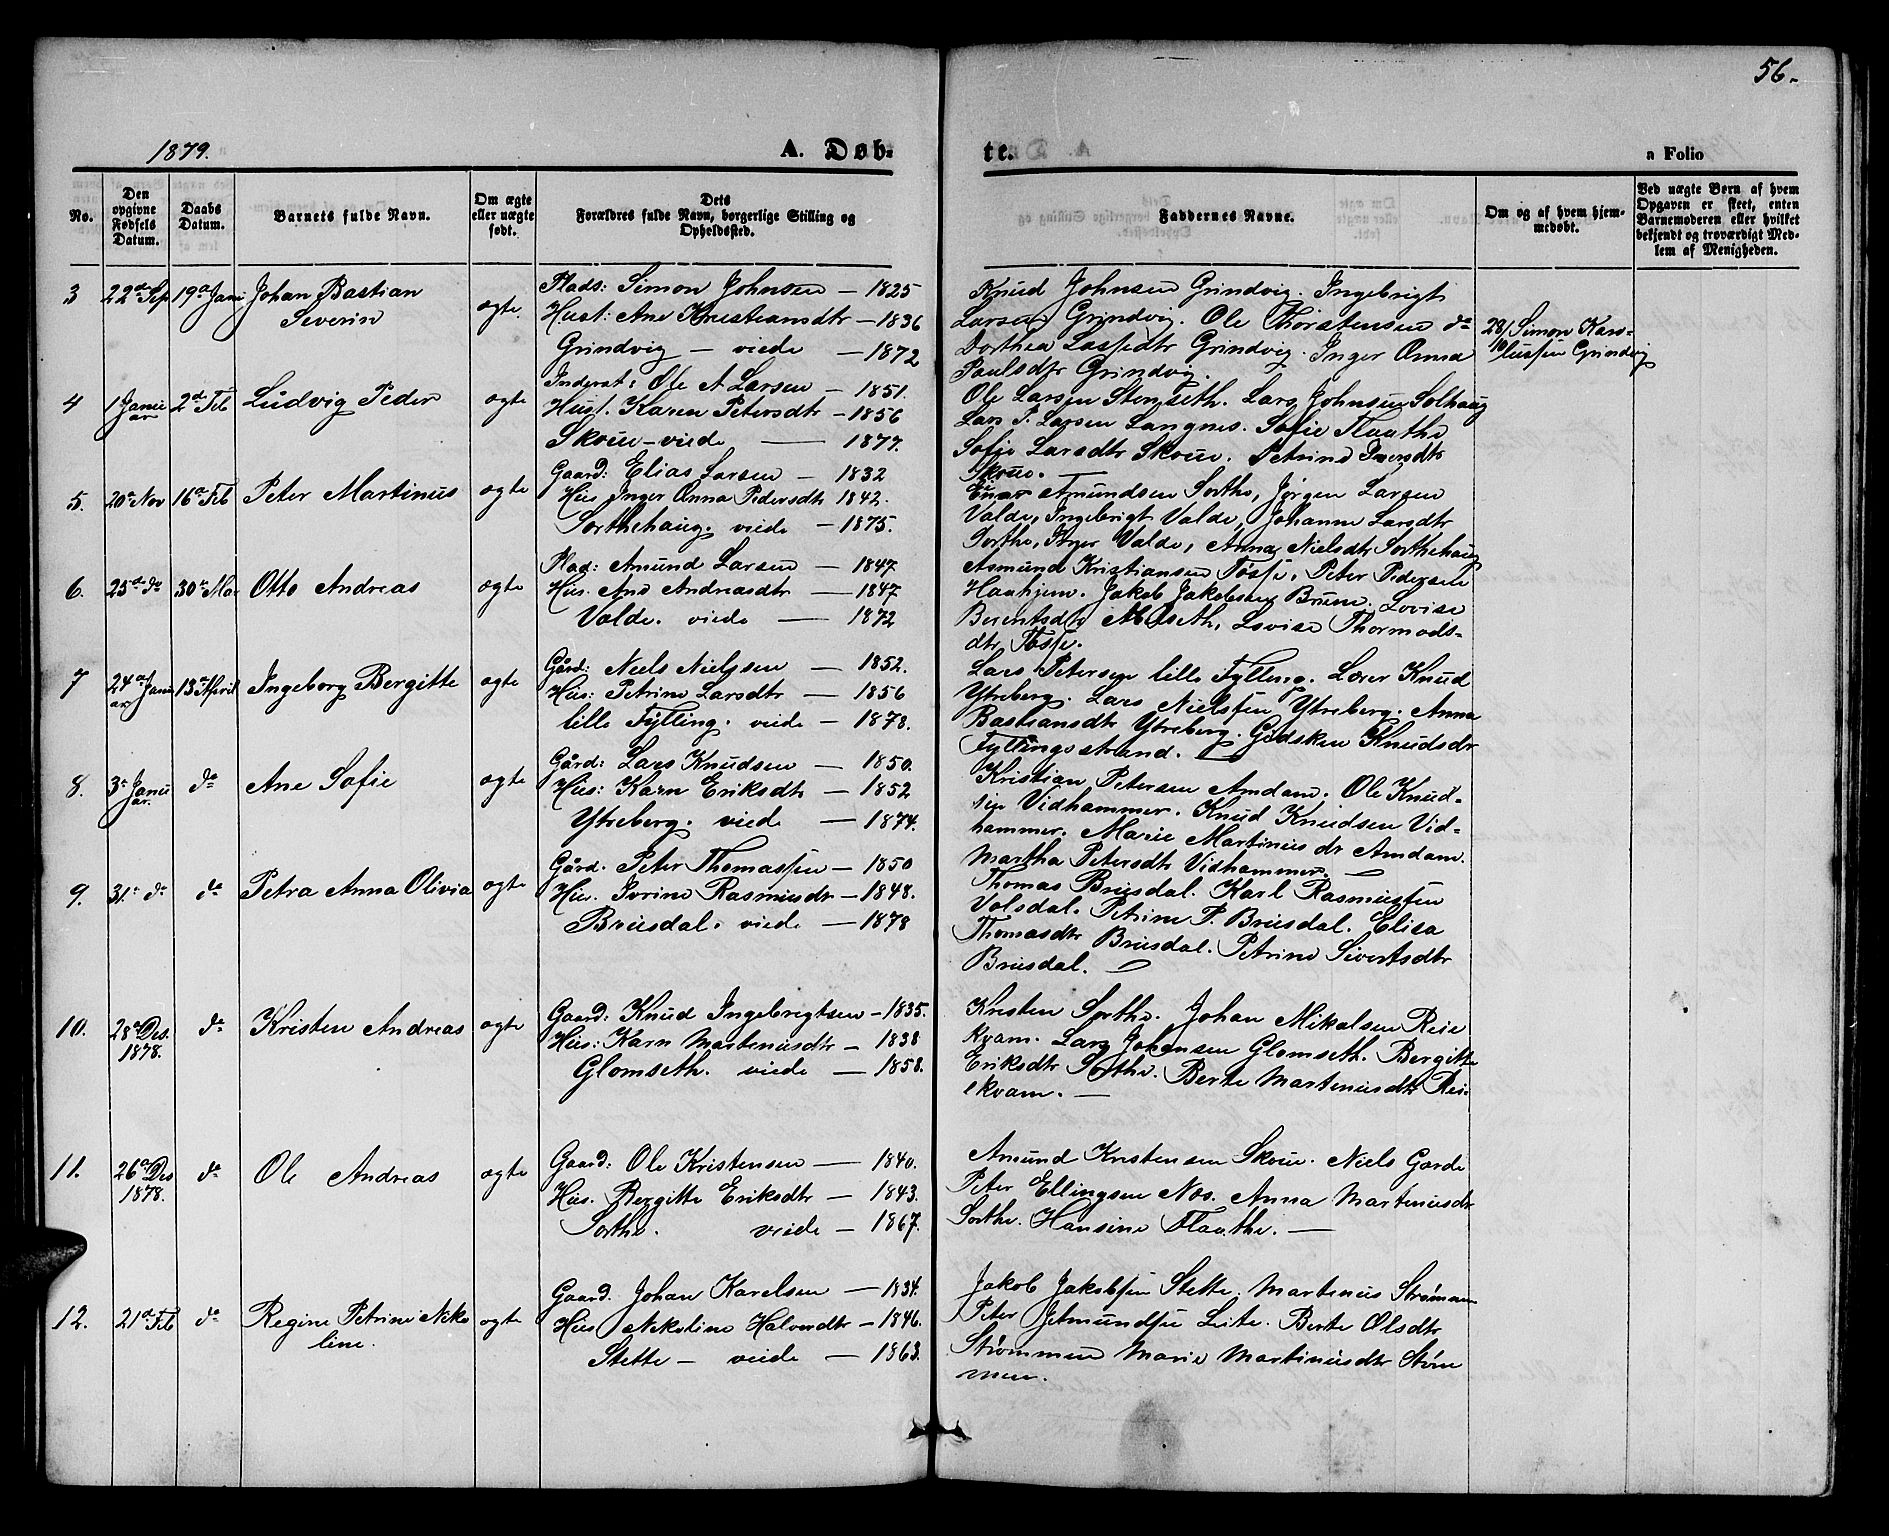 56.
1879.
A. Døb-
te.
a Folio
No.
Den opgivne Fødsels Datum.
Daabs Datum.
Barnets fulde Navn.
Om ægte eller uægte født.
Dets Forældres fulde Navn, borgerlige Stilling og Opholdssted.
Faddernes Navne.
Om og af hvem hjemmedøbt.
Ved uægte Børn af hvem Opgaven er skeet, enten Barnemoderen eller hvilket bekjendt og troværdigt Medlem af Menigheden.
3 22de Sep 19de Janu Johan Bastian Severin ægte
Plads: Simon Johnsen – 1825
Hust: Ane Kristiansdtr – 1836
Grindvig – viede – 1872
Knud Johnsen Grindvig. Ingebrigt
Larsen Grindvig. Ole Thorstensen do
Dorthea Lassedtr Grindvig. Inger Anna
Paulsdtr Grindvig.
28/10 Simon Karolussen Grindvig
4 1 Januar 2de Feb Ludvig Peder ægte
Inderst: Ole A Larsen – 1851.
Hust. Karen Petersdtr – 1856
Skoue – viede – 1877.
Ole Larsen Stenseth. Lars Johnsen Solhaug
Lars P. Larsen Langnes. Sofie Flaathe
Sofie Larsdtr Skoue. Petrine Iversdtr
Skoue.
5. 20de Nov 16de Feb Peter Martinus ægte
Gaard: Elias Larsen – 1832
Hus Inger Anna Pedersdtr 1842.
Sorthehaug. viede – 1875.
Einar Amundsen Sorthe, Jørgen Larsen
Valde, Ingebrigt Valde, Johanne Larsdtr
Sorthe, Inger Valde, Anna Nielsdtr Sorthehaug
6. 25de do 30te Ma Otto Andreas ægte
Plad: Amund Larsen – 1847
Hus. Ane Andreasdtr – 1847
Valde. viede – 1872
Asmund Kristiansen Tøsse, Peter Pedersen
Haahjem. Jakob Jakobsen Brune. Lovise
Berentsdtr Molseth, Lovise Thormods-
dtr Tøsse.
7 24de Januar 13de April Ingeborg Bergitte ægte
Gård: Niels Nielssen – 1852.
Hus: Petrine Larsdtr – 1856
lille Fylling. viede – 1878.
Lars Petersen lille Fylling. Lærer Knud
Ytreberg. Lars Nielssen Ytreberg. Anna
Bastiansdtr Ytreberg. Gidsken Knudsdtr
Fyllingsstrand.
8. 3de Januar. do Ane Sofie ægte
Gård: Lars Knudsen – 1850.
Hus: Karn Eriksdtr – 1852
Ytreberg. viede – 1874.
Kristian Petersen Amdam. Ole Knud-
sen Vidhammer. Knud Knudsen Vid-
hammer. Marie Martinusdtr Amdam.
Martha Petersdtr Vidhammer. –
9. 31te do do Petra Anna Olivia ægte
Gård. Peter Thomassen – 1850
Hus. Ivrine Rasmusdtr – 1848.
Brusdal. viede – 1878
Thomas Brusdal. Karl Rasmussen
Volsdal. Petrine P. Brusdal. Elisa
Thomasdtr Brusdal. Petrine Sivertsdtr
Brusdal. –
10. 28de Des. 1878. do Kristen Andreas ægte
Gaard: Knud Ingebrigtsen – 1835.
Hus: Karn Martinusdtr – 1838
Glomseth. viede – 1858.
Kristen Sorthe. Johan Mikalsen Reie
kvam. Lars Johansen Glomseth. Bergitte
Eriksdtr Sorthe. Berte Martinusdtr Rei-
ekvam. –
11. 26de Des 1878. do Ole Andreas ægte
Gaard: Ole Kristensen – 1840.
Hus. Bergitte Eriksdtr – 1843.
Sorthe. viede – 1867.
Amund Kristensen Skoue. Niels Garde
Peter Ellingsen Næs. Anna Martinusdtr
Sorthe. Hansine Flaathe. –
12. 21de Feb do Regine Petrine Nikoline. ægte
Gaard. Johan Karelsen – 1834.
Hus Nikoline Halvordtr – 1846.
Stette – viede – 1863.
Jakob Jakobsen Stette. Martinus Strømmen
Peter Jetmundsen Leite. Berte Olsdtr
Strømmen Marie Martinusdtr Strøm
men.